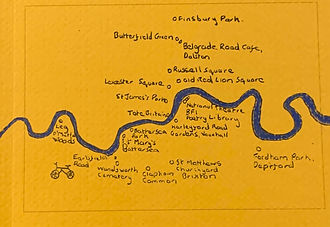 Finsbury Park.
Butterfield Green
Belgrade Road Cafe,
Dalston
Russell Square
Old Red Lion Square
Leicester Square
St James's Park
National Theatre
BFI
Poetry Library
Tate Britain
Harleyford Road
Gardens, Vauxhall
Battersea
Park
St Mary's
Battersea
Leg
of Mutton
Woods
Earlsfield
Road
Wandsworth
Cemetery
Clapham
Common
St Matthews
Churchyard
Brixton
Fordham Park,
Deptford